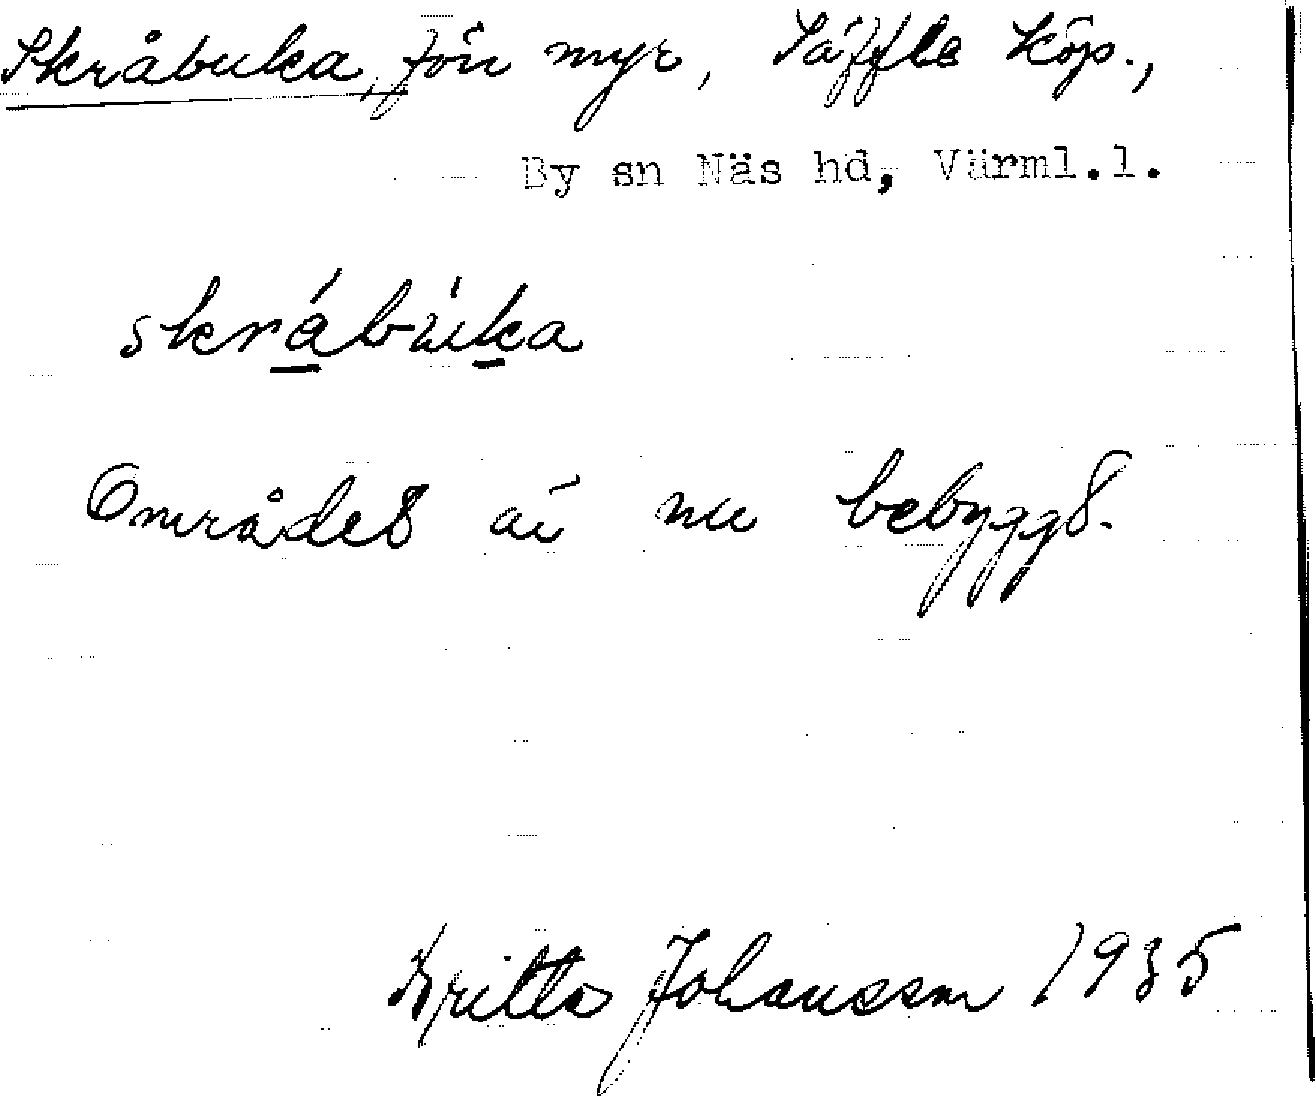 Skråbuka, förr myr, Säffle köp.,
By sn Näs hd, Värml.l.
skrábùka
Området är nu bebyggt.
Britta Johansson 1935